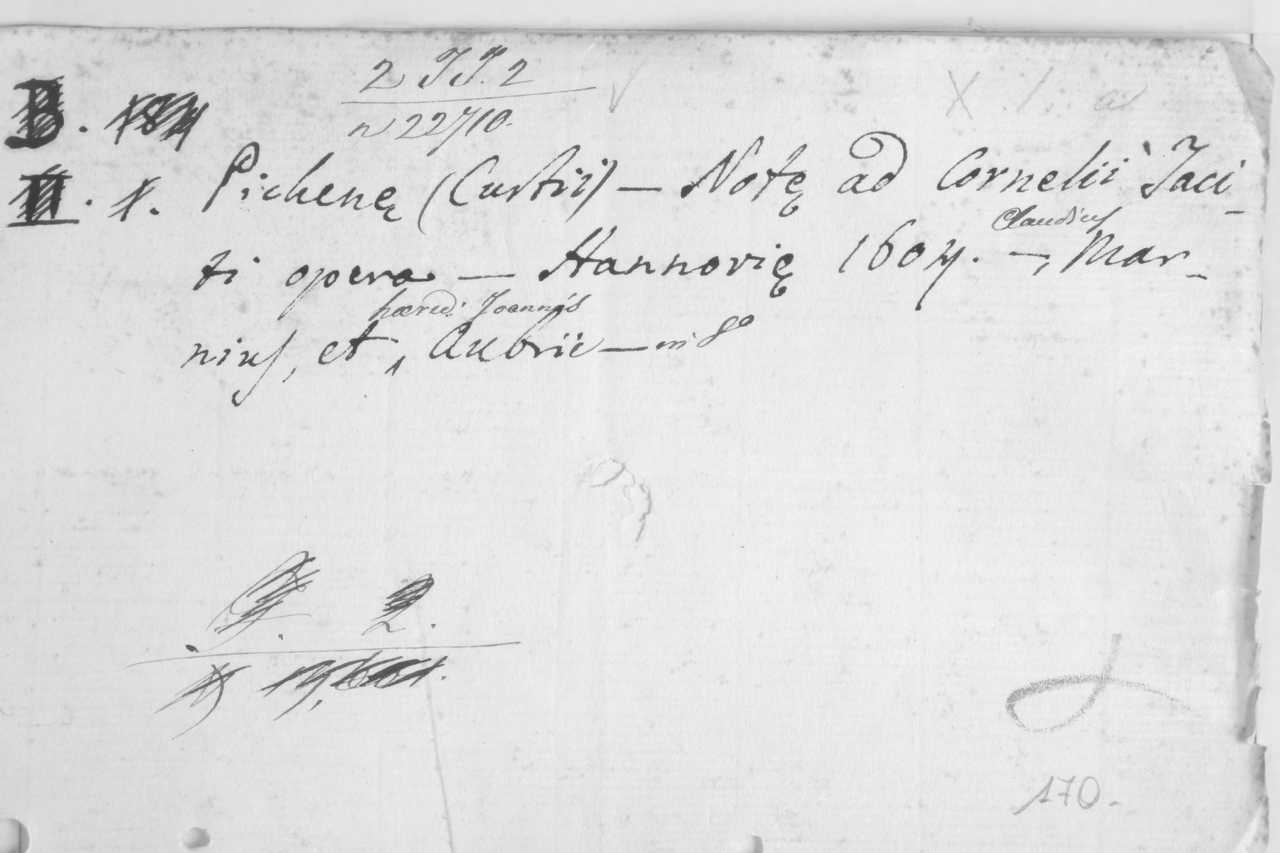 2 JJ. 2
n 22710.
X . 1. a
B.
II. 1. Pichenę (Curtii) — Notę ad Cornelii Taci-
ti opera — Hannovię 1604. — Claudius Mar-
nius, et hæred. Joannis Aubrii — in 8°
2.
170.